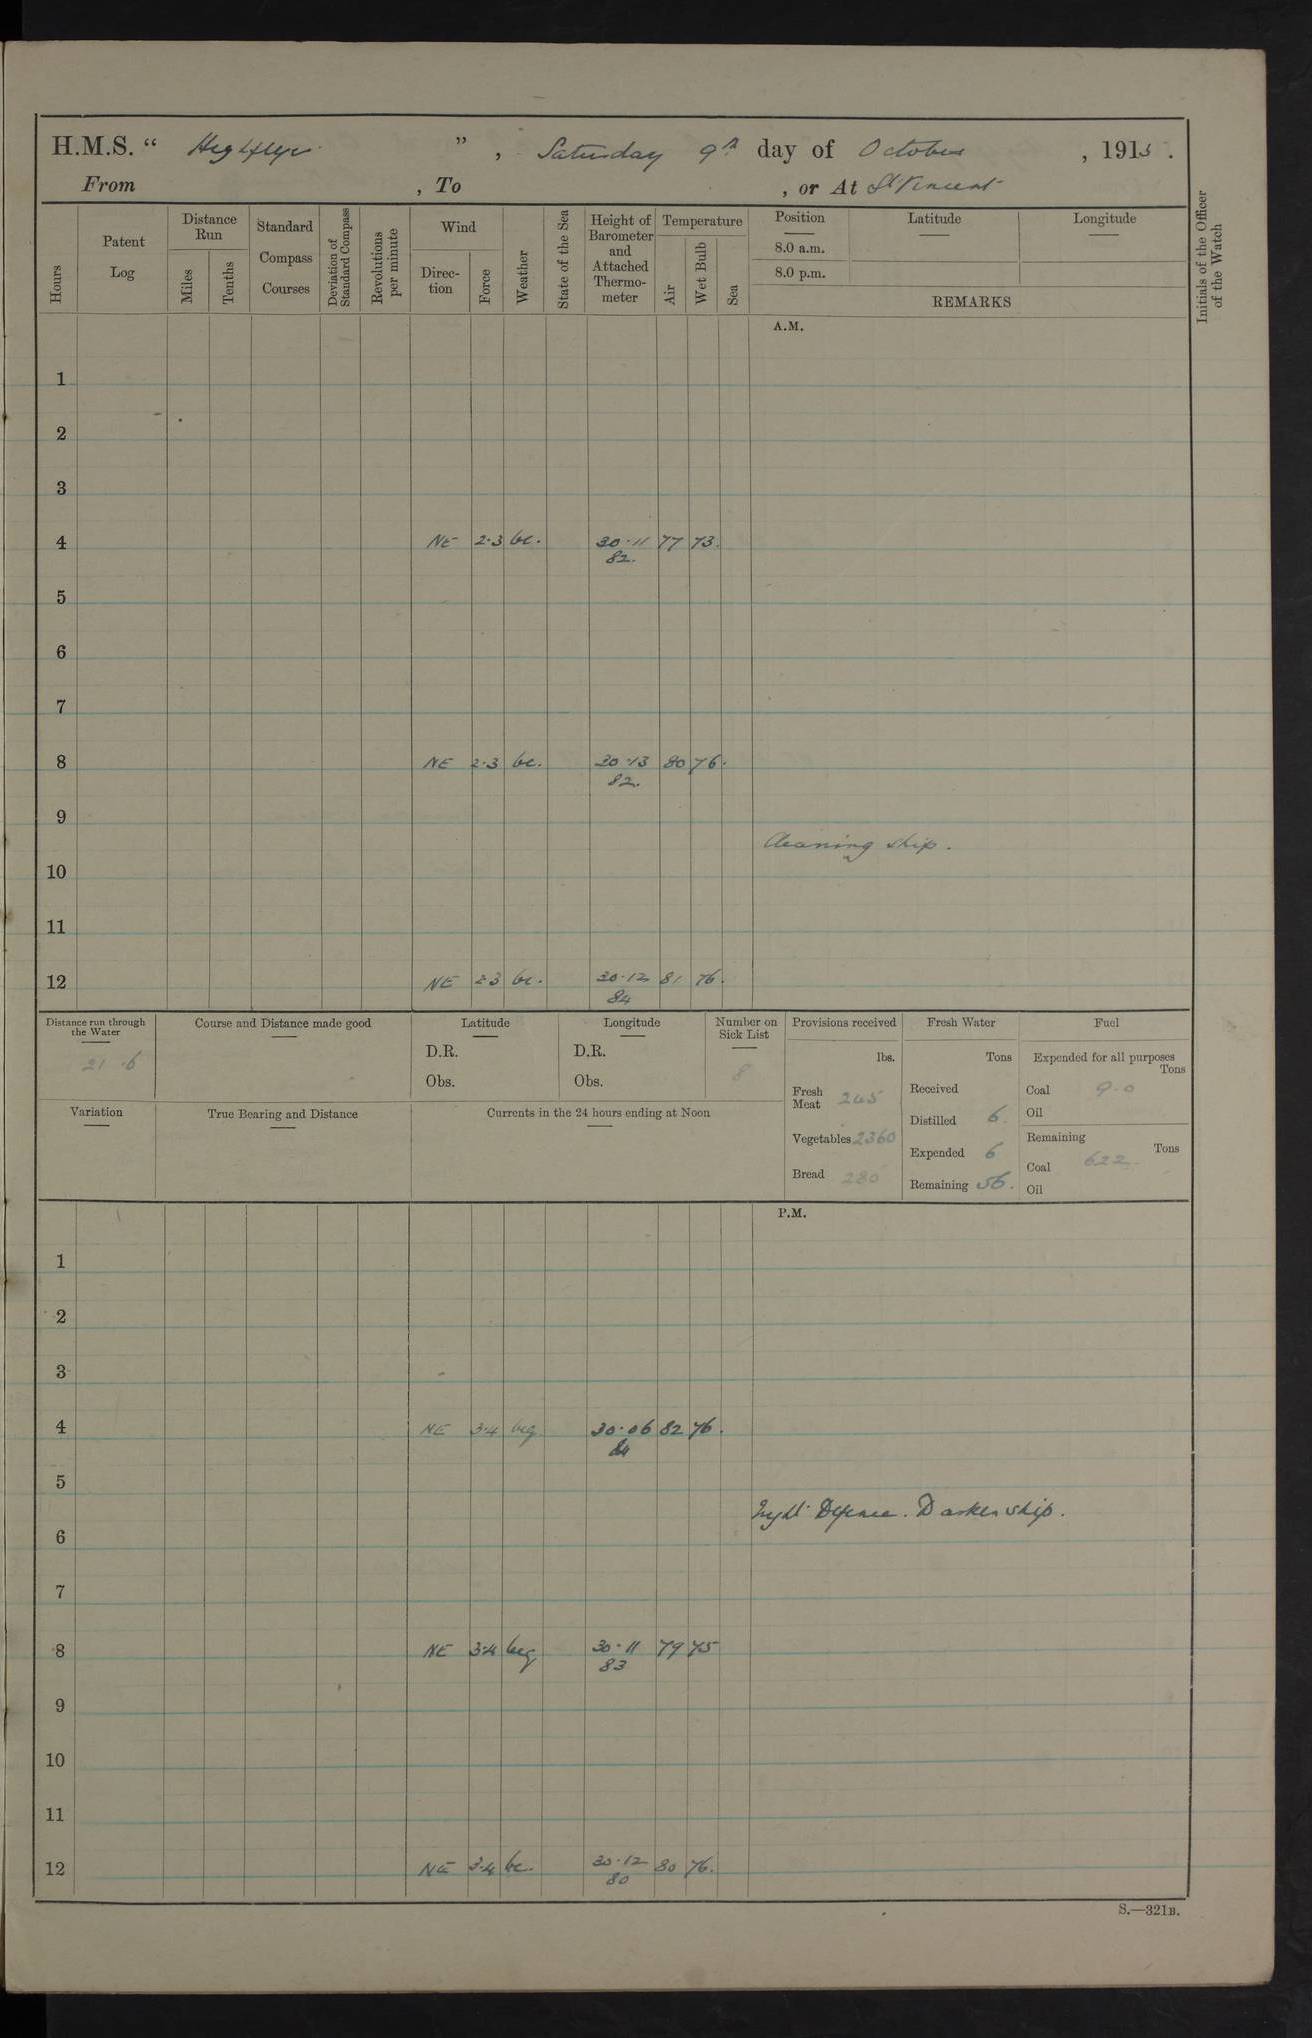 H.M.S. “ Highflyer ” , Saturday 9th day of October , 1915 .
From , To , or At St Vincent
Hours
Patent Log
Distance Run
Miles
Tenths
Standard Compass Courses
Deviation of Standard Compass
Revolutions per minute
Wind
Direction
Force
Weather
State of the Sea
Height of Barometer and Attached Thermometer
Temperature
Air
Wet Bulb
Sea
Position
8.0 a.m.
8.0 p.m.
Latitude
Longitude
REMARKS
Initials of the Officer of the Watch
A.M.
1
2
3
4 NE 2·3 bc. 30·11 77 73.
82.
5
6
7
8 NE 2·3 bc. 30·13 80 76.
82.
9
Cleaning ship.
10
11
12 NE 2·3 bc. 30·12 81 76.
84
Distance run through the Water
21 .6
Course and Distance made good
Latitude
D.R.
Obs.
Longitude
D.R.
Obs.
Number on Sick List
8
Variation
True Bearing and Distance
Currents in the 24 hours ending at Noon
Provisions received
lbs.
Fresh Meat 245
Vegetables 2360
Bread 280
Fresh Water
Tons
Received
Distilled 6.
Expended 6
Remaining 56.
Fuel
Expended for all purposes
Tons
Coal 9.0
Oil
Remaining
Tons
Coal 622.
Oil
P.M.
1
2
3
4 NE 3·4 bcq 30·06 82 76.
84
5
Night Defence. Darken ship.
6
7
8 NE 3·4 bcq 30·11 79 75
83
9
10
11
12 NE 3·4 bc. 30·12 80 76.
80
S.—321B.